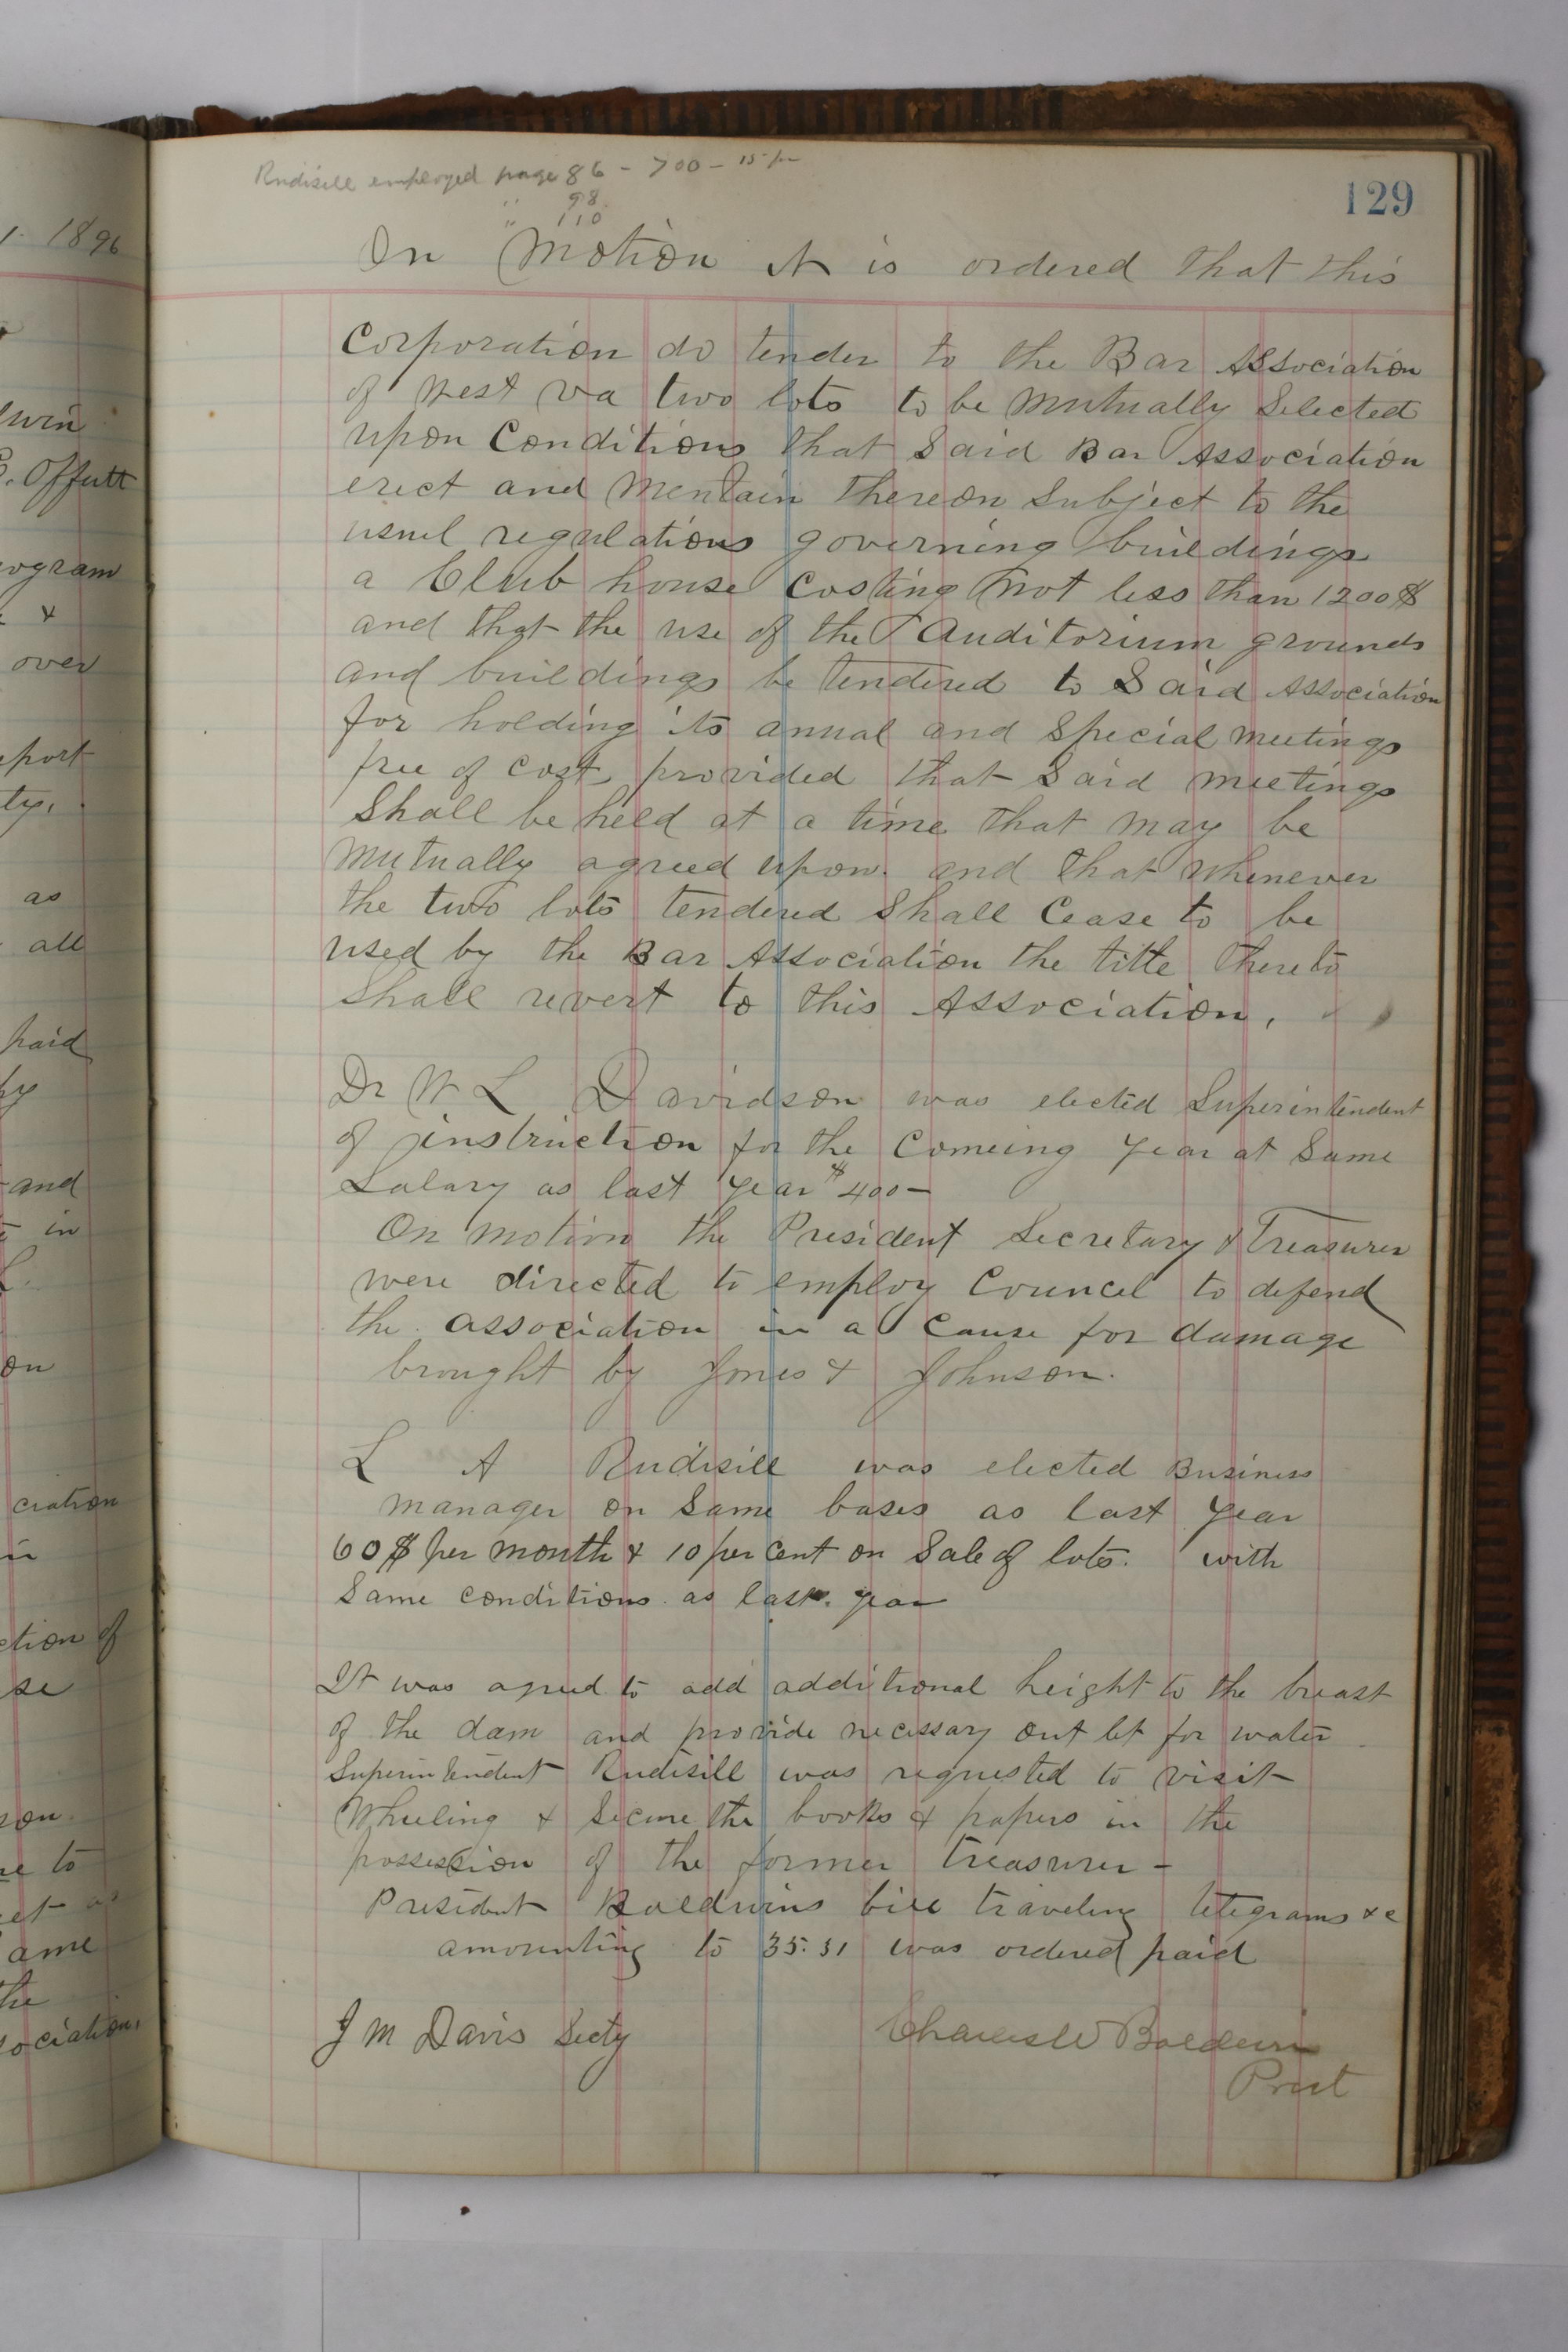 1. 1896
win
E. Offutt
ogram
& 
over
eport
ty.
as
all
paid
by
and
in
on
ciation
in
ction of
se
son
re to
ame
the
sociation.
Rudisill employed page 86 - 700 -
" 98
" 110
129
On Motion it is ordered that this
Corporation do tender to the Bar Association
of West Va two lots to be Mutually Selected
upon Conditions that Said Bar Association
erect and Mentain thereon Subject to the
usuel regulations governing buildings
a Club house Costing not less than 1200$
and that the use of the Auditorium grounds
and buildings be tendered to Said Association
for holding its anual and Special meetings
free of cost, provided that Said meetings
Shall be held at a time that may be
Mutually agreed upon. and that whenever
the two lots tendered Shall Cease to be
used by the Bar Association the title thereto
Shall revert to this Association,
Dr W L Davidson was elected Superintendent
of instruction for the Comeing year at Same
Salary as last year $400-
On motion the President Secretary & Treasurer
were directed to employ Councel to defend
the association in a Cause for damage
brought by Jones & Johnson.
L A Rudisill was elected Business
manager on Same bases as last year
60$ per month & 10 per Cent on Sale of lots. with
Same conditions as last year
It was agreed to add additional height to the breast
of the dam and provide necessary out let for water
Superintendent Rudisill was requested to visit
Wheeling & Secure the books & papers in the
possession of the former treasurer -
President Baldwins bill traveling telegrams &c
amounting to 35.31 was ordered paid
J M Davis Secty
Charles W Baldwin
Prest